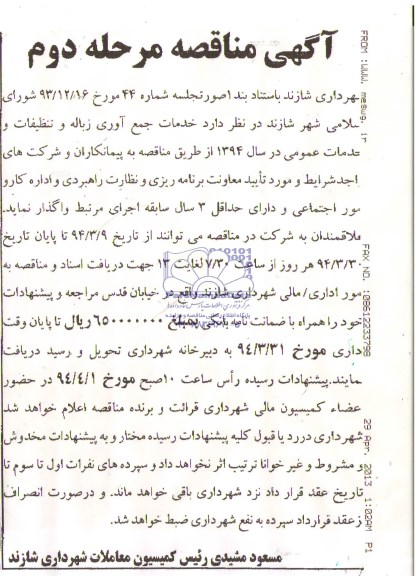 آگهی مناقصه مرحله دوم
شهرداری شازند باستناد بند ۱صورتجلسه شماره ۴۴ مورخ ۹۳/۱۲/۱۶ شورای
سلامی شهر شازند در نظر دارد خدمات جمع آوری زباله و تنظیفات و
خدمات عمومی در سال ۱۳۹۴ از طریق مناقصه به پیمانکاران و شرکت های
اجدشرایط و مورد تأیید معاونت برنامه ریزی و نظارت راهبردی و اداره کارو
مور اجتماعی و دارای حداقل ۳ سال سابقه اجرای مرتبط واگذار نماید.
علاقمندان به شرکت در مناقصه می توانند از تاریخ ۹۴/۳/۹ تا پایان تاریخ
۹۴/۳/۳۰ هر روز از ساعت ۷/۳۰ لغایت ۱۳ جهت دریافت اسناد و مناقصه به
مور اداری/ مالی شهرداری شازند واقع در خیابان قدس مراجعه و پیشنهادات
خود را همراه با ضمانت نامه بانکی بمبلغ ریال تا پایان وقت
داری مورخ ۹۴/۳/۳۱ به دبیرخانه شهرداری تحویل و رسید دریافت
نمایند.پیشنهادات رسیده رأس ساعت ۱۰صبح مورخ ۹۴/۴/۱ در حضور
عضاء کمیسیون مالی شهرداری قرائت و برنده مناقصه اعلام خواهد شد.
شهرداری دررد یا قبول کلیه پیشنهادات رسیده مختار و به پیشنهادات مخدوش
و مشروط و غیر خوانا ترتیب اثر نخواهد داد و سپرده های نفرات اول تا سوم تا
تاریخ عقد قرار داد نزد شهرداری باقی خواهد ماند. و درصورت انصراف
زعقد قرارداد سپرده به نفع شهرداری ضبط خواهد شد.
مسعود مشیدی رئیس کمیسیون معاملات شهرداری شازند
FROM :WWW. mesug. ir
FAX NO. :00861223379B
29 Apr. 2013 1:02AM P1